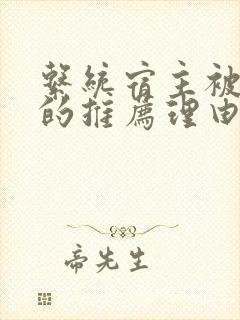 繫統宿主被
的推薦理由
帝先生